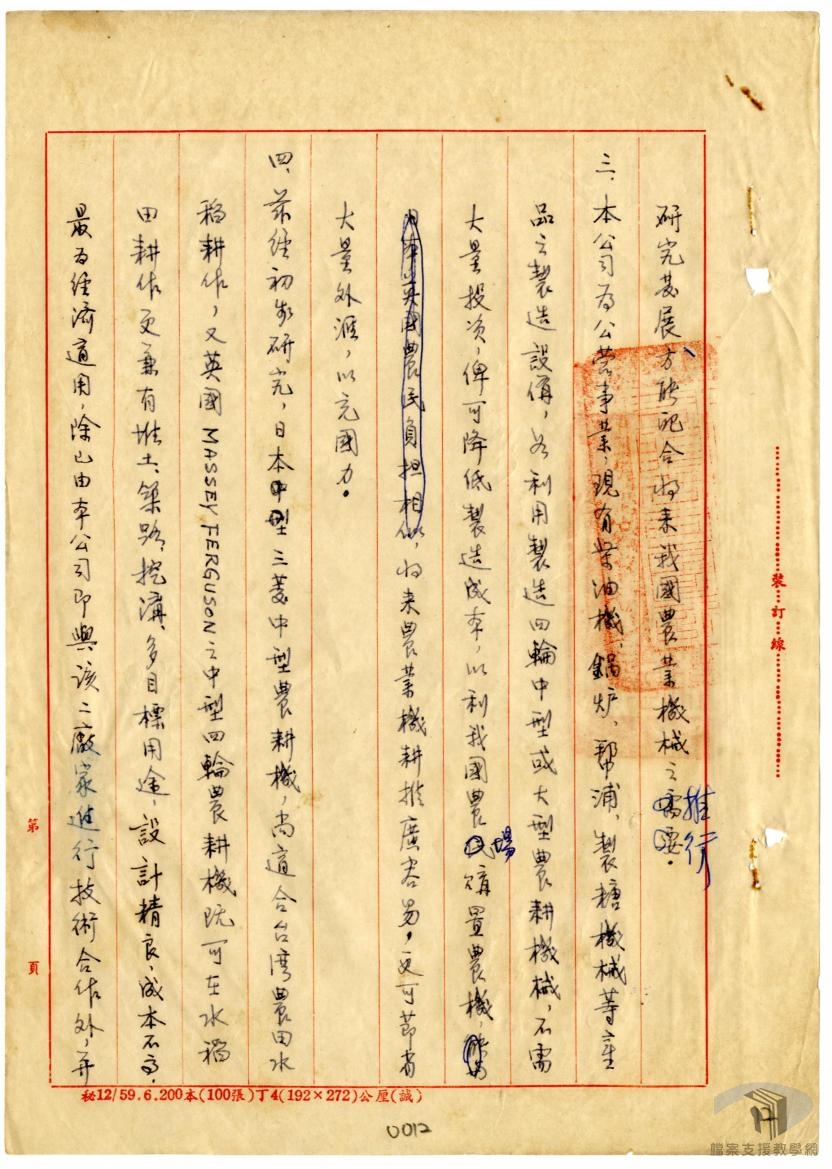 研究發展方能配合將來我國農業機械之需要。
推行
三、本公司為公營事業，現有柴油機、鍋炉、幫浦、製糖機械等產
品之製造設備，若利用製造四輪中型或大型農耕機械，不需
大量投資，俾可降低製造成本，以利我國農民購置農機，
場
英國農民負担相似，將來農業機耕推廣容易，更可節省
大量外滙，以充國力。
四、茲經初步研究，日本中型三菱中型農耕機，尚適合台湾農田水
稻耕作，又英國MASSEY FERGUSON之中型四輪農耕機既可在水稻
田耕作更兼有堆土、築路、挖溝、多目標用途，設計精良，成本不高，
最為經濟適用，除已由本公司即與該二廠家進行技術合作外，并
裝訂線
第 頁
秘12/59.6.200本(100張)丁4(192×272)公厘(誠)
0012
17
檔案支援教學網